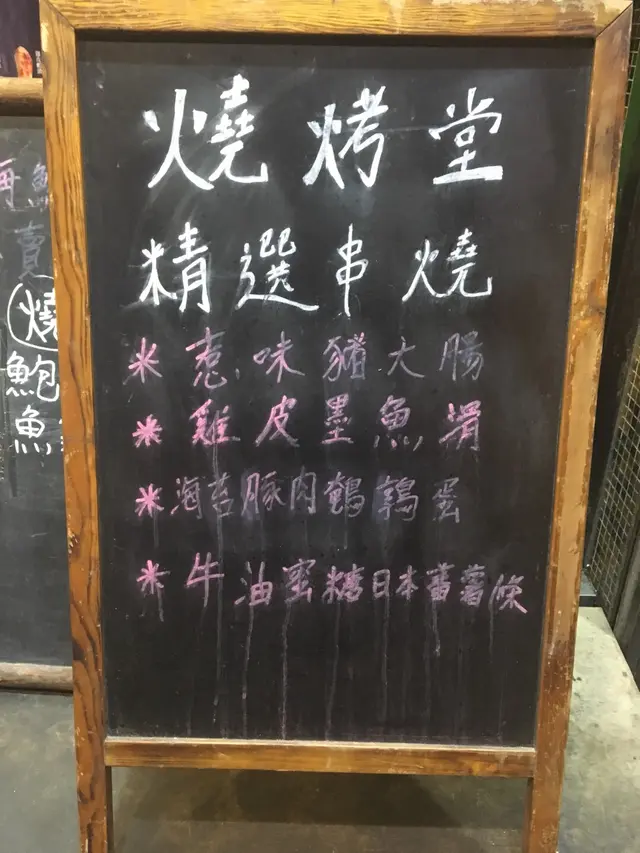 燒烤堂
精選串燒
* 惹味豬大腸
* 雞皮墨魚滑
* 海苔豚肉鵪鶉蛋
* 牛油蜜糖日本蕃薯條
賣
燒
鮑
魚